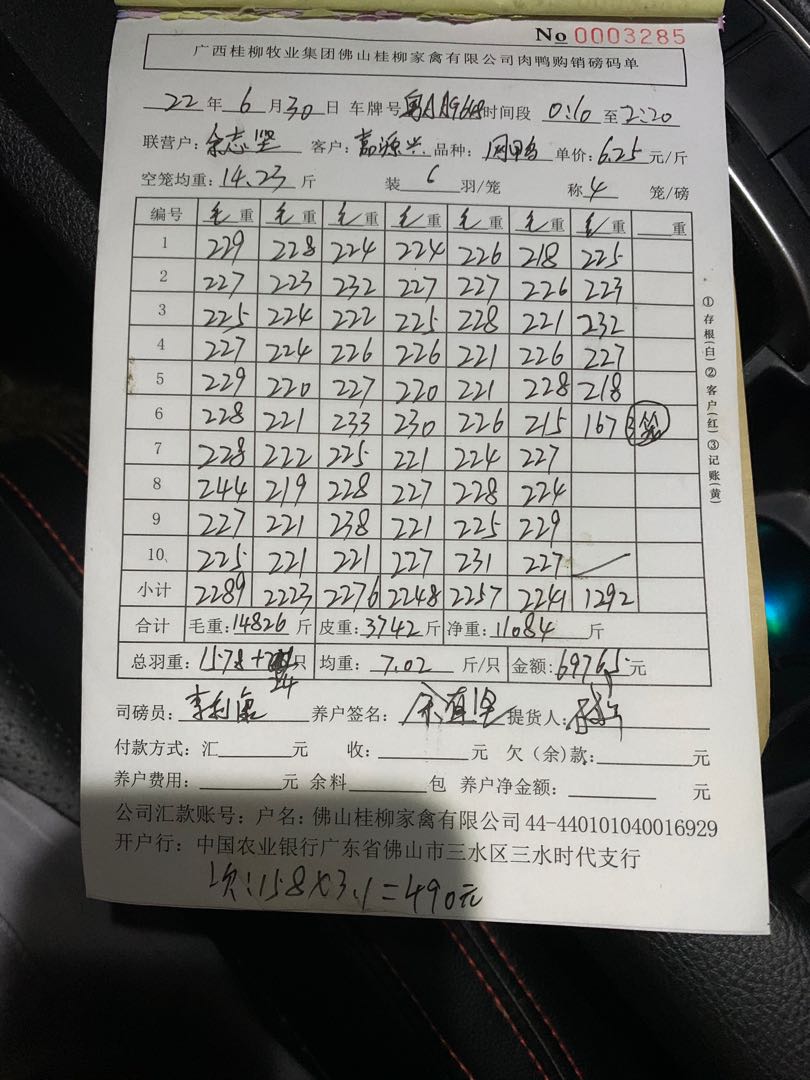 No 0003285
广西桂柳牧业集团佛山桂柳家禽有限公司肉鸭购销磅码单
22年6月30日 车牌号 时间段 0:10至2:20
联营户:余志坚 客户:嘉源兴 品种: 单价:6.25元/斤
空笼均重:14.23斤 装6羽/笼 称4笼/磅
编号 毛重 毛重 毛重 毛重 毛重 毛重 毛重 重
1 229 228 224 224 226 218 225
2 227 223 232 227 227 226 223
3 225 224 222 225 228 221 232
4 227 224 226 226 221 226 227
5 229 220 227 220 221 228 218
6 228 221 233 230 226 215 167 3笼
7 228 222 225 221 224 227
8 244 219 228 227 228 224
9 227 221 238 221 225 229
10、 225 221 221 227 231 227
小计 2289 2223 2276 2248 2257 2241 1292
合计 毛重:14826斤 皮重:3742斤 净重:11084斤
总羽重:1578+ 只 均重:7.02斤/只 金额:69765元
24
司磅员:李利康 养户签名: 提货人:
付款方式:汇 元 收: 元 欠(余)款: 元
养户费用: 元 余料 包 养户净金额: 元
公司汇款账号:户名:佛山桂柳家禽有限公司44-440101040016929
开户行:中国农业银行广东省佛山市三水区三水时代支行
次:158×3.1=490元
①存根(白)②客户(红)③记账(黄)